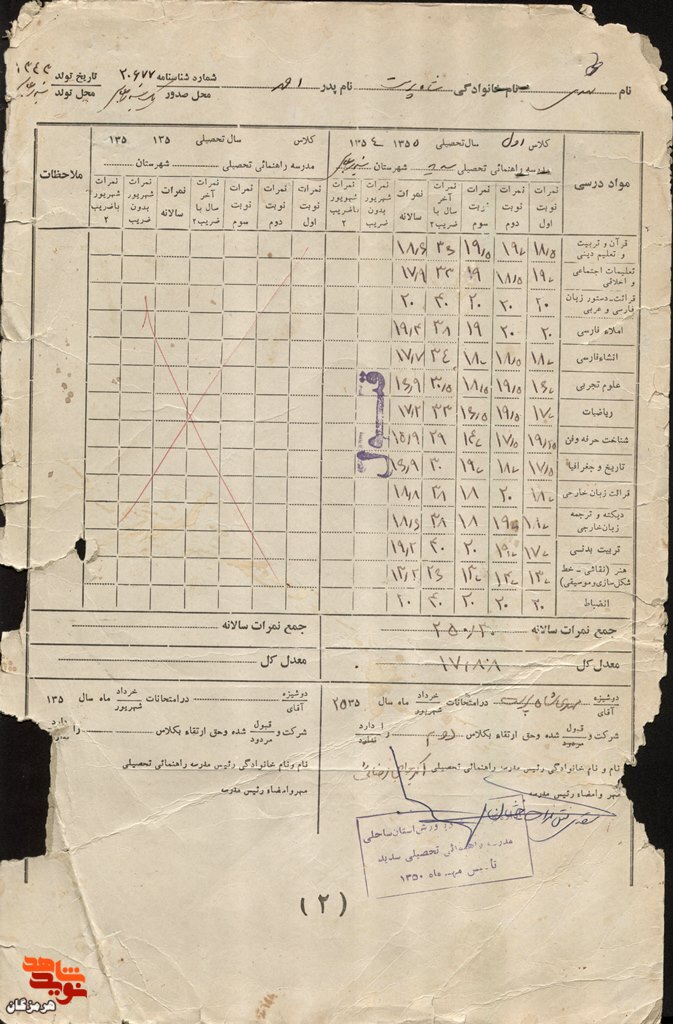 نام مهدی نام خانوادگی شاه پرست نام پدر احمد شماره شناسنامه ۲۰۶۷۷ تاریخ تولد ۱۳۴۳
محل صدور محل تولد
مواد درسی
کلاس اول سال تحصیلی ۱۳۵۵ ۱۳۵۴
مدرسه راهنمائی تحصیلی شهرستان
نمرات نوبت اول
نمرات نوبت دوم
نمرات نوبت سوم
نمرات آخر سال با ضریب ۲
نمرات سالانه
نمرات شهریور بدون ضریب
نمرات شهریور باضریب ۲
کلاس سال تحصیلی ۱۳۵ ۱۳۵
مدرسه راهنمائی تحصیلی شهرستان
نمرات نوبت اول
نمرات نوبت دوم
نمرات نوبت سوم
نمرات آخر سال با ضریب ۲
نمرات سالانه
نمرات شهریور بدون ضریب
نمرات شهریور باضریب ۲
ملاحظات
قرآن و تربیت و تعلیم دینی ۱۸/۵ ۱۹ ۱۹/۵ ۳۶ ۱۸/۶
تعلیمات اجتماعی و اخلاقی ۱۹ ۱۸/۵ ۱۹ ۳۳ ۱۷/۹
قرائت-دستور زبان فارسی و عربی ۲۰ ۲۰ ۲۰ ۴۰ ۲۰
املاء فارسی ۲۰ ۲۰ ۱۹ ۳۸ ۱۹/۴
انشاءفارسی ۱۸ ۱۸/۵ ۱۸ ۳۴ ۱۷/۷
علوم تجربی ۱۶ ۱۹/۵ ۱۸/۵ ۳۰/۵ ۱۶/۹
ریاضیات ۱۷ ۱۹/۵ ۱۶/۵ ۳۳ ۱۷/۲
شناخت حرفه وفن ۱۷/۵ ۱۴ ۲۹ ۱۵/۹
تاریخ و جغرافیا ۱۷/۵ ۱۸ ۱۹ ۳۰ ۱۶/۹
قرائت زبان خارجی ۱۸ ۲۰ ۱۸ ۳۸ ۱۸/۸
دیکته و ترجمه زبان خارجی ۱۸ ۱۹ ۱۸ ۳۸ ۱۸/۶
تربیت بدنی ۱۷ ۱۹ ۲۰ ۴۰ ۱۹/۲
هنر (نقاشی - خط شکل‌سازی وموسیقی) ۱۳ ۱۴ ۱۳ ۲۶ ۱۳/۲
انضباط ۲۰ ۲۰ ۲۰ ۴۰ ۲۰
قبول
جمع نمرات سالانه ۲۵۰/۳۰
جمع نمرات سالانه
معدل کل ۱۷/۸۸
معدل کل
دوشیزه آقای مهدی شاه پرست در امتحانات خرداد شهریور ماه سال ۲۵۳۵
شرکت و قبول مردود شده وحق ارتقاء بکلاس دوم را دارد ندارد
نام و نام خانوادگی رئیس مدرسه راهنمائی تحصیلی
مهر وامضاء رئیس مدرسه
دوشیزه آقای درامتحانات خرداد شهریور ماه سال ۱۳۵
شرکت و قبول مردود شده وحق ارتقاء بکلاس را دارد
نام ونام خانوادگی رئیس مدرسه راهنمائی تحصیلی
مهر وامضاء رئیس مدرسه
ورزش استان ساحلی
مدرسه راهنمائی تحصیلی سدید
تأسیس مهر ماه ۱۳۵۰
(۲)
نوید شاهد
هرمزگان